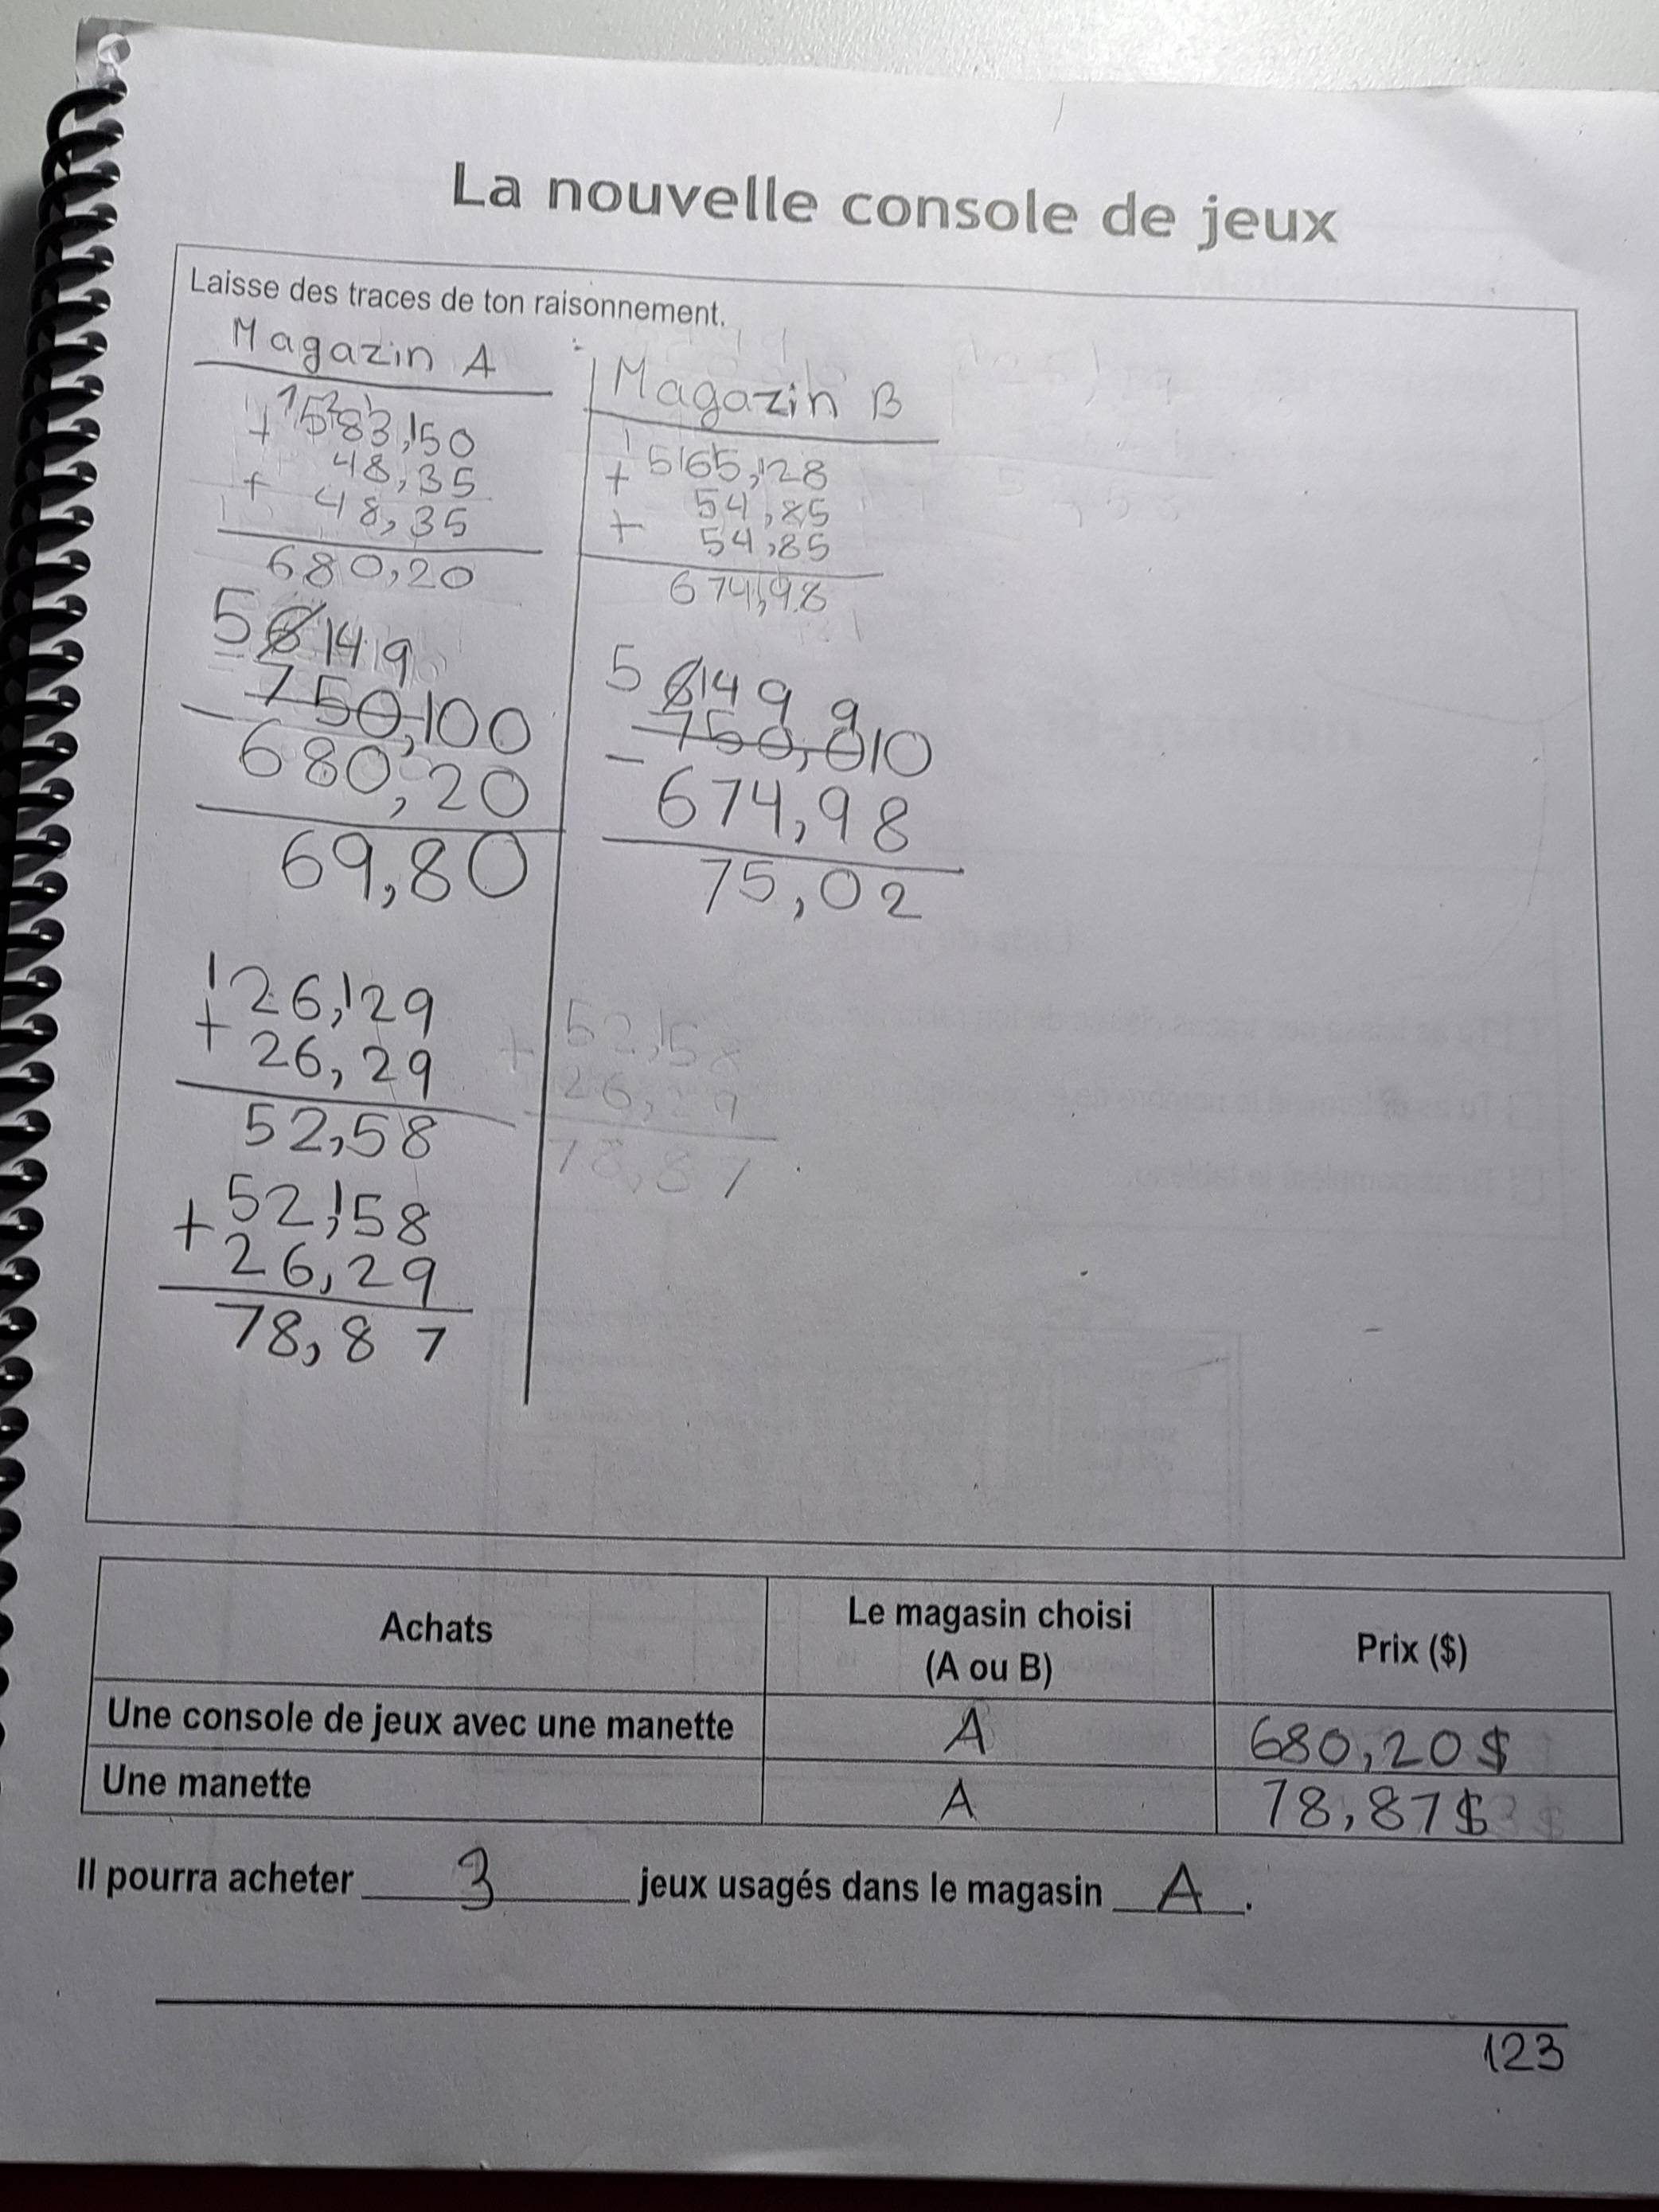 La nouvelle console de jeux
Laisse des traces de ton raisonnement.
Magazin A
+ 583,50
48,35
+ 48,35
680,20
5 6 14 9
- 750,100
680,20
69,80
26,29
+ 26,29
52,58
+ 52,58
26,29
78,87
Magazin B
+ 565,28
54,85
+ 54,85
674,98
5 6 14 9 9
- 750,010
674,98
75,02
+ 52,58
26,29
78,87
Achats Le magasin choisi (A ou B) Prix ($)
Une console de jeux avec une manette A 680,20$
Une manette A 78,87$
Il pourra acheter 3 jeux usagés dans le magasin A.
123